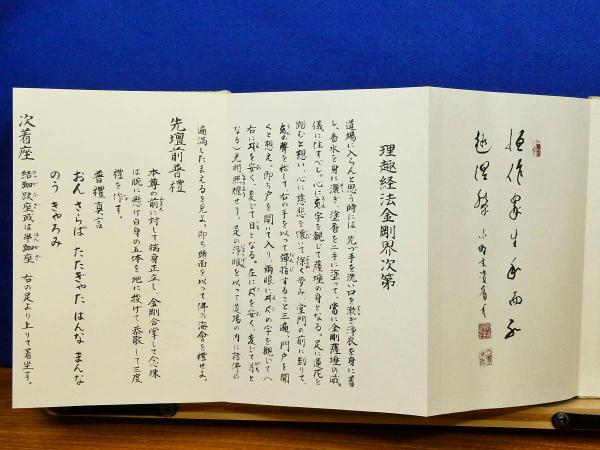 恒作衆生利而不
趣涅槃
理趣経法金剛界次第
道場に入らんと思う時には、先づ手を洗い口を漱ぎ浄衣を身に着
し、香水を身に灑ぎ、塗香を二手に塗って、當に金剛薩埵の威
儀に住すべし。心に字を観じて薩埵の身となる。足に蓮花を
踏むと想い、心に慈悲を懐いて徐く歩み、堂門の前に到りて、
の聲を称して、右の手を以って彈指すること三遍。門戸を開
くと想え。即ち戸を開いて入り、兩眼にの字を観じて〈
右にを安く、変じて日となる。左にを安く、変じて月と
なる〉光明照耀せり。此の浄眼を以って道場の内に諸佛の
遍満したまえるを見よ。即ち頭面を以って佛の海會を禮せよ。
先壇前普禮
本尊の前に対して端身正立し、金剛合掌して念珠
は腕に懸け自身の五体を地に投げて恭敬して三度
禮を作す。
普禮真言
おん さらば たたぎゃた はんな まんな
のう きゃろみ
次着座
結跏趺座或は半跏座 右の足より上りて着坐す。